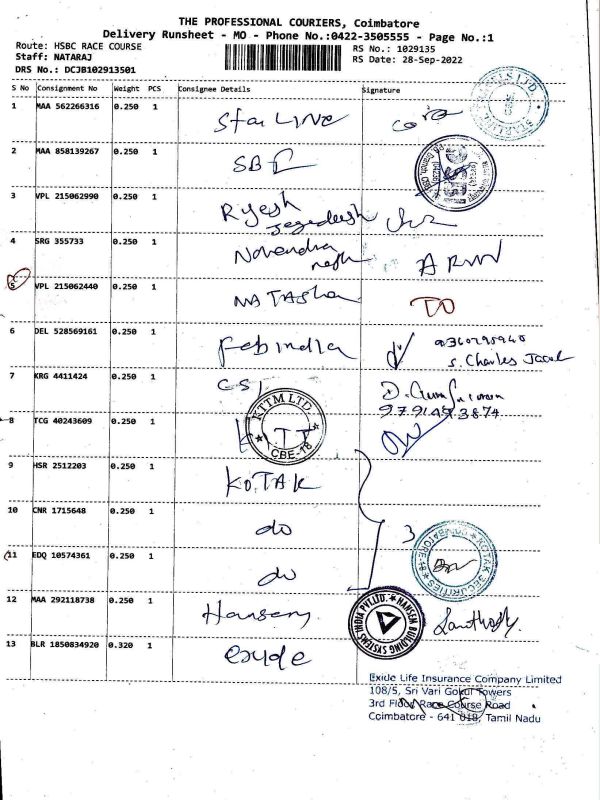 THE PROFESSIONAL COURIERS, Coimbatore
Delivery Runsheet - MO - Phone No.:0422-3505555 - Page No.:1
Route: HSBC RACE COURSE
Staff: NATARAJ
DRS No.: DCJB102913501
RS No.: 1029135
RS Date: 28-Sep-2022
S No Consignment No Weight PCS Consignee Details Signature
1 MAA 562266316 0.250 1 Star LINE
2 MAA 858139267 0.250 1 SBI
3 VPL 215062990 0.250 1 Rajesh Jegadeesh
4 SRG 355733 0.250 1 Novendra ARUN
5 VPL 215062440 0.250 1 NATASha TO
6 DEL 528569161 0.250 1 Febindia 9360795940
S. Charles Jacob
7 KRG 4411424 0.250 1 CSI D.
9791493874
8 TCG 40243609 0.250 1 KITT
KTTM LTD.
CBE-18
9 HSR 2512203 0.250 1 KOTAK
10 CNR 1715648 0.250 1 do 3
KOTAK SECURITIES
COIMBATORE-18
11 EDQ 10574361 0.250 1 do
12 MAA 292118738 0.250 1 Hansen Santhosh
HANSEN BUILDING SYSTEMS INDIA PVT.LTD.
13 BLR 1850834920 0.320 1 exide
Exide Life Insurance Company Limited
108/5, Sri Vari Gokul Towers
3rd Floor, Race Course Road
Coimbatore - 641 018, Tamil Nadu